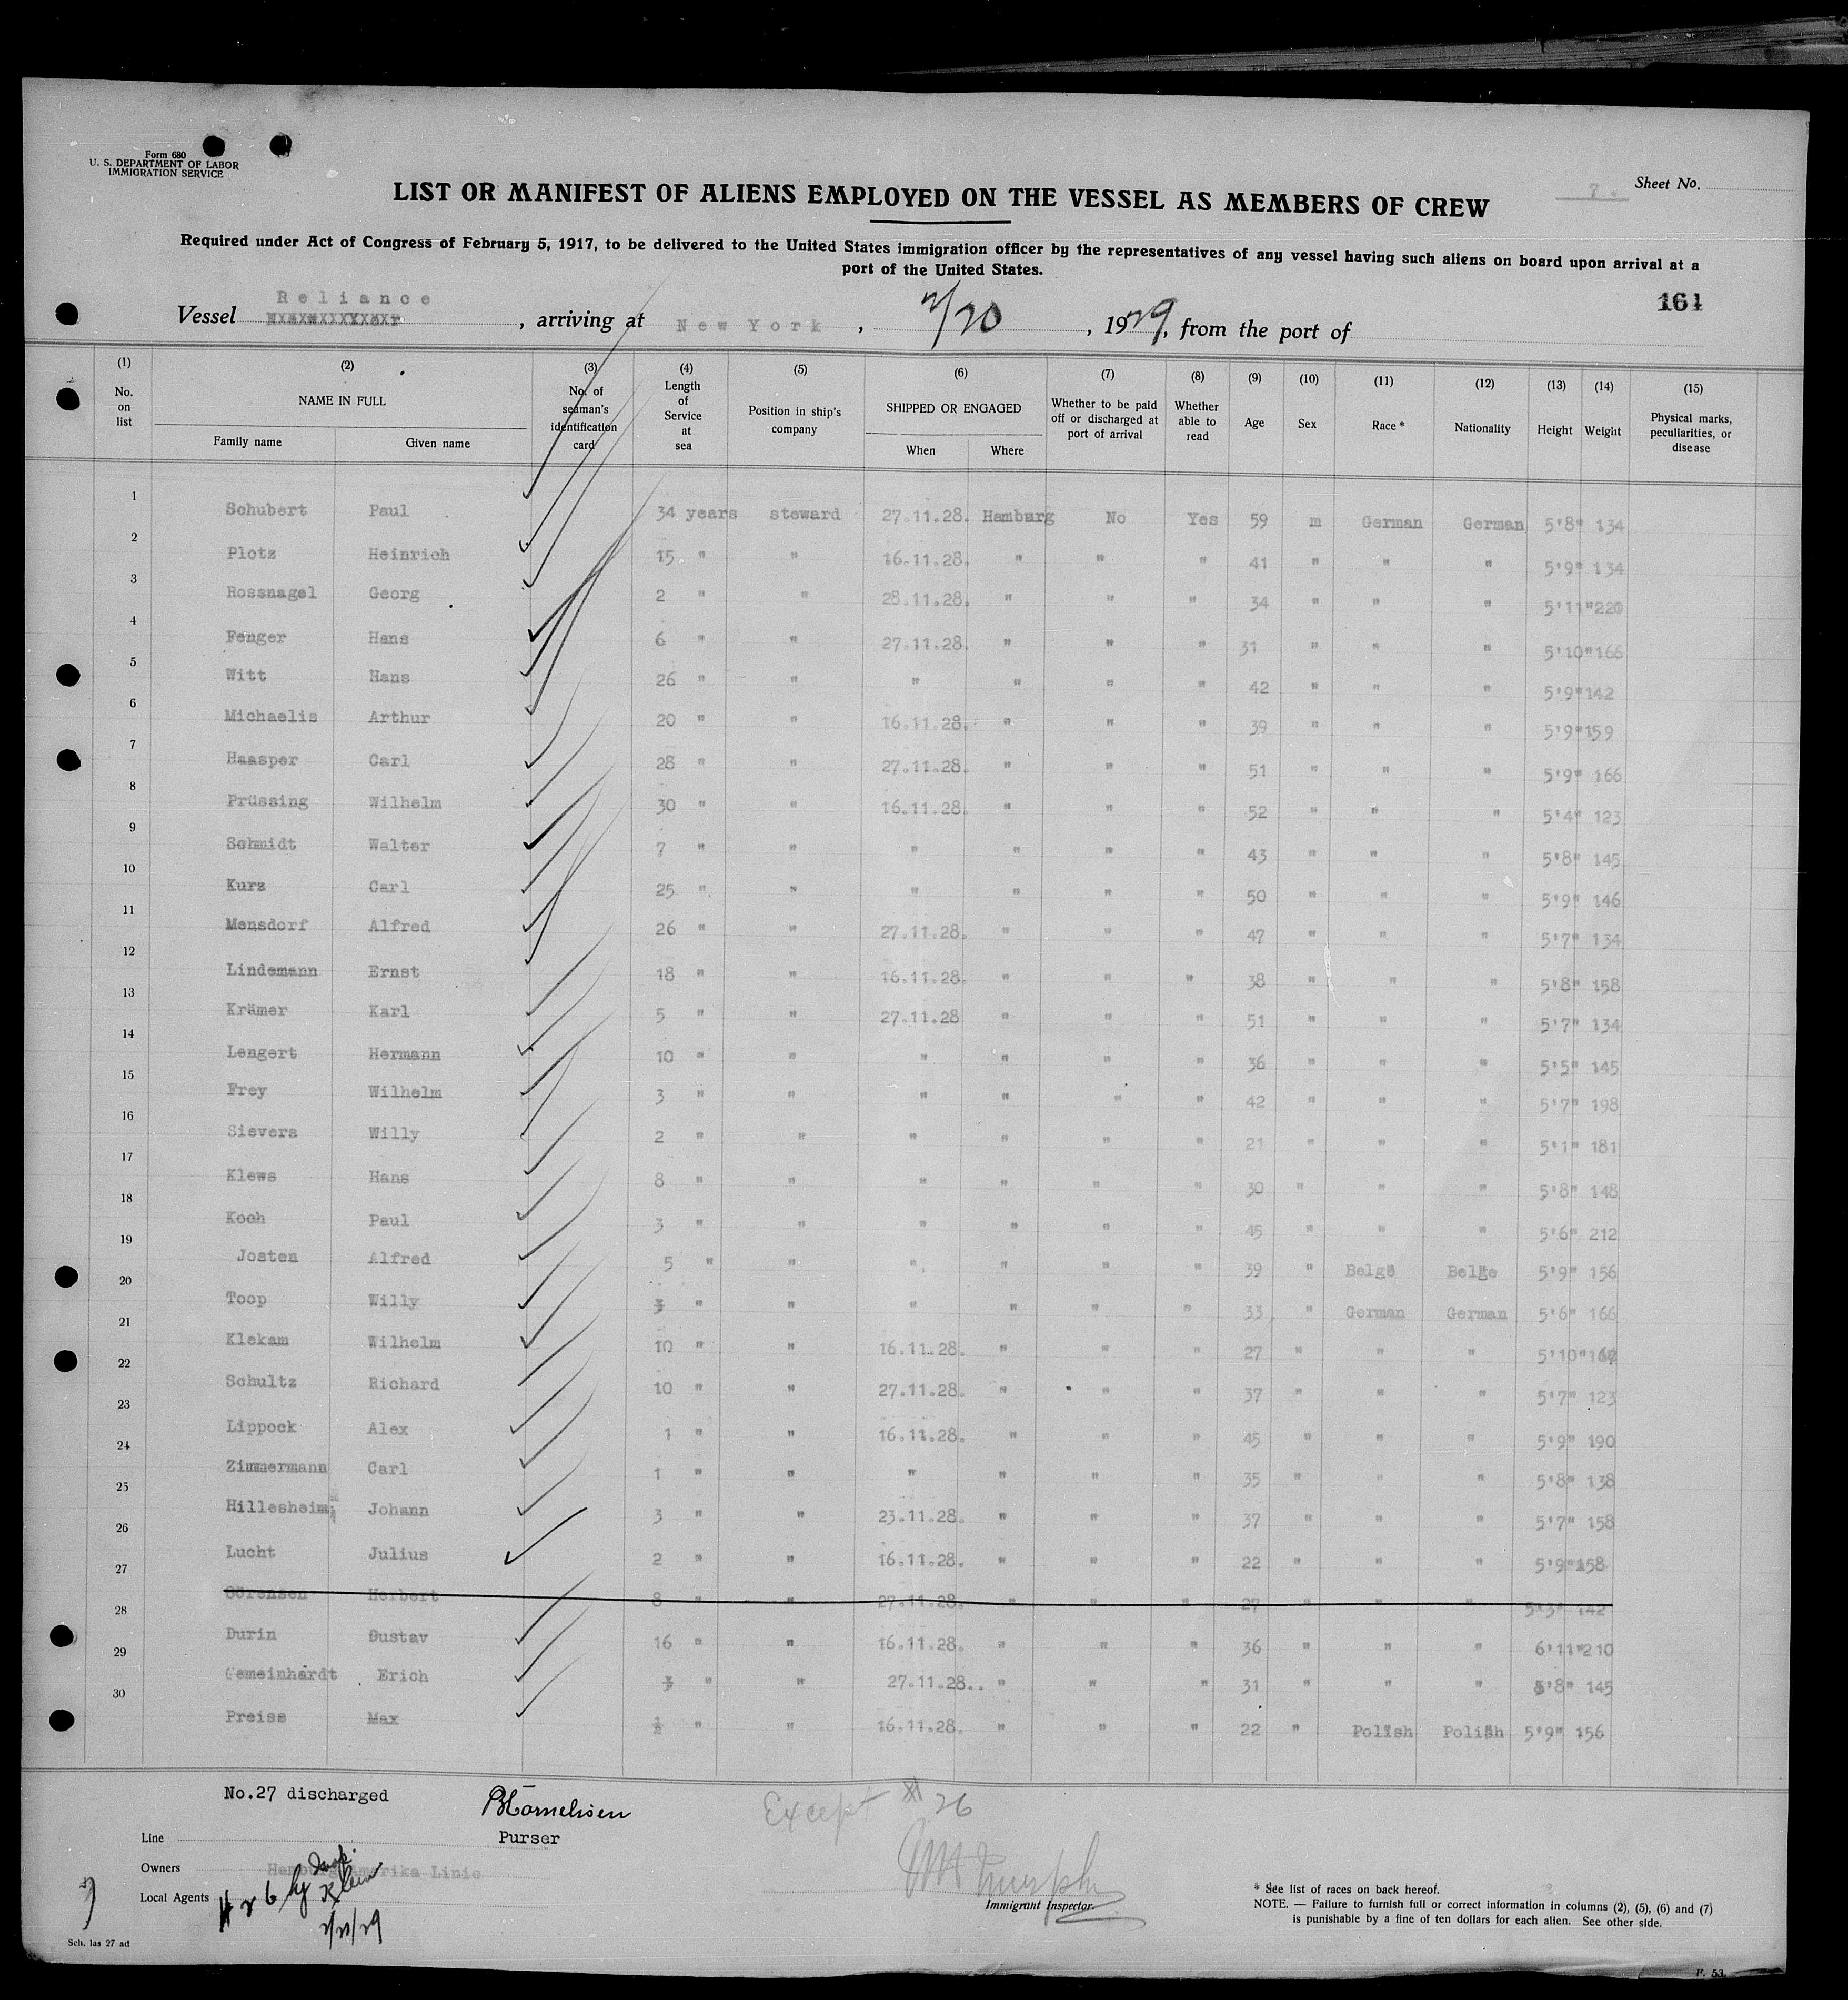 Form 680
U. S. DEPARTMENT OF LABOR
IMMIGRATION SERVICE
7. Sheet No.
LIST OR MANIFEST OF ALIENS EMPLOYED ON THE VESSEL AS MEMBERS OF CREW
Required under Act of Congress of February 5, 1917, to be delivered to the United States immigration officer by the representatives of any vessel having such aliens on board upon arrival at a
port of the United States.
161
Reliance
Vessel , arriving at New York , 2/20 , 1929, from the port of
(1) (2) (3) (4) (5) (6) (7) (8) (9) (10) (11) (12) (13) (14) (15)
No. on list NAME IN FULL Family name Given name No. of seaman's identification card Length of Service at sea Position in ship's company SHIPPED OR ENGAGED When Where Whether to be paid off or discharged at port of arrival Whether able to read Age Sex Race * Nationality Height Weight Physical marks, peculiarities, or disease
1 Schubert Paul 34 years steward 27.11.28. Hamburg No Yes 59 m German German 5'8" 134
2 Plotz Heinrich 15 " " 16.11.28. " " " 41 " " " 5'9" 134
3 Rossnagel Georg 2 " " 28.11.28. " " " 34 " " " 5'11" 220
4 Fenger Hans 6 " " 27.11.28. " " " 31 " " " 5'10" 166
5 Witt Hans 26 " " " " " " 42 " " " 5'9" 142
6 Michaelis Arthur 20 " " 16.11.28. " " " 39 " " " 5'9" 159
7 Haasper Carl 28 " " 27.11.28. " " " 51 " " " 5'9" 166
8 Prüssing Wilhelm 30 " " 16.11.28. " " " 52 " " " 5'4" 123
9 Schmidt Walter 7 " " " " " " 43 " " " 5'8" 145
10 Kurz Carl 25 " " " " " " 50 " " " 5'9" 146
11 Mensdorf Alfred 26 " " 27.11.28. " " " 47 " " " 5'7" 134
12 Lindemann Ernst 18 " " 16.11.28. " " " 38 " " " 5'8" 158
13 Krämer Karl 5 " " 27.11.28 " " " 51 " " " 5'7" 134
14 Lengert Hermann 10 " " " " " " 36 " " " 5'5" 145
15 Frey Wilhelm 3 " " " " " " 42 " " " 5'7" 198
16 Sievers Willy 2 " " " " " " 21 " " " 5'1" 181
17 Klews Hans 8 " " " " " " 30 " " " 5'8" 148
18 Koch Paul 3 " " " " " " 45 " " " 5'6" 212
19 Josten Alfred 5 " " " " " " 39 " Belge Belge 5'9" 156
20 Toop Willy " " " " " " 33 " German German 5'6" 166
21 Klekam Wilhelm 10 " " 16.11.28. " " " 27 " " " 5'10"
22 Schultz Richard 10 " " 27.11.28. " " " 37 " " " 5'7" 123
23 Lippock Alex 1 " " 16.11.28. " " " 45 " " " 5'9" 190
24 Zimmermann Carl 1 " " " " " " 35 " " " 5'8" 138
25 Hillesheim Johann 3 " " 23.11.28. " " " 37 " " " 5'7" 158
26 Lucht Julius 2 " " 16.11.28. " " " 22 " " " 5'9" 158
27 Sörensen Herbert 8 " " 27.11.28. " " " 27 " " " 5'3" 142
28 Durin Gustav 16 " " 16.11.28. " " " 36 " " " 6'11" 210
29 Gemeinhardt Erich " " 27.11.28.. " " " 31 " " " 5'8" 145
30 Preiss Max ½ " " 16.11.28. " " " 22 " Polish Polish 5'9" 156
No.27 discharged
Except 26
Purser
Line
Owners Hamburg Amerika Linie
Local Agents
# 26 by Insp. Klein
2/20/29
Immigrant Inspector.
* See list of races on back hereof.
NOTE. — Failure to furnish full or correct information in columns (2), (5), (6) and (7)
is punishable by a fine of ten dollars for each alien. See other side.
Sch. las 27 ad
F. 53.